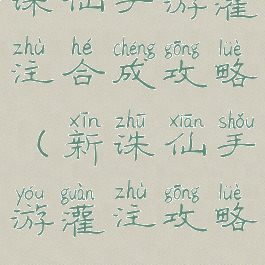 诛仙手游灌
zhù hé chéng gōng lüè
注合成攻略
xīn zhū xiān shǒu
(新诛仙手
yóu guàn zhù gōng lüè
游灌注攻略